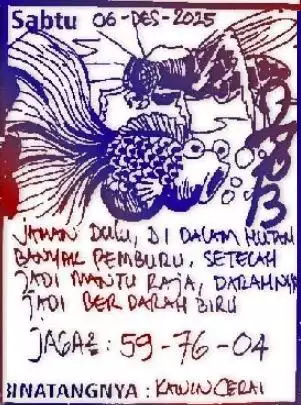 Sabtu 06-DES-2025
JAMAN DULU, DI DALAM HUTAN
BANYAK PEMBURU, SETELAH
JADI MANTU RAJA, DARAHNYA
JADI BERDARAH BIRU
JAGA2 : 59-76-04
BINATANGNYA : KAWIN CERAI